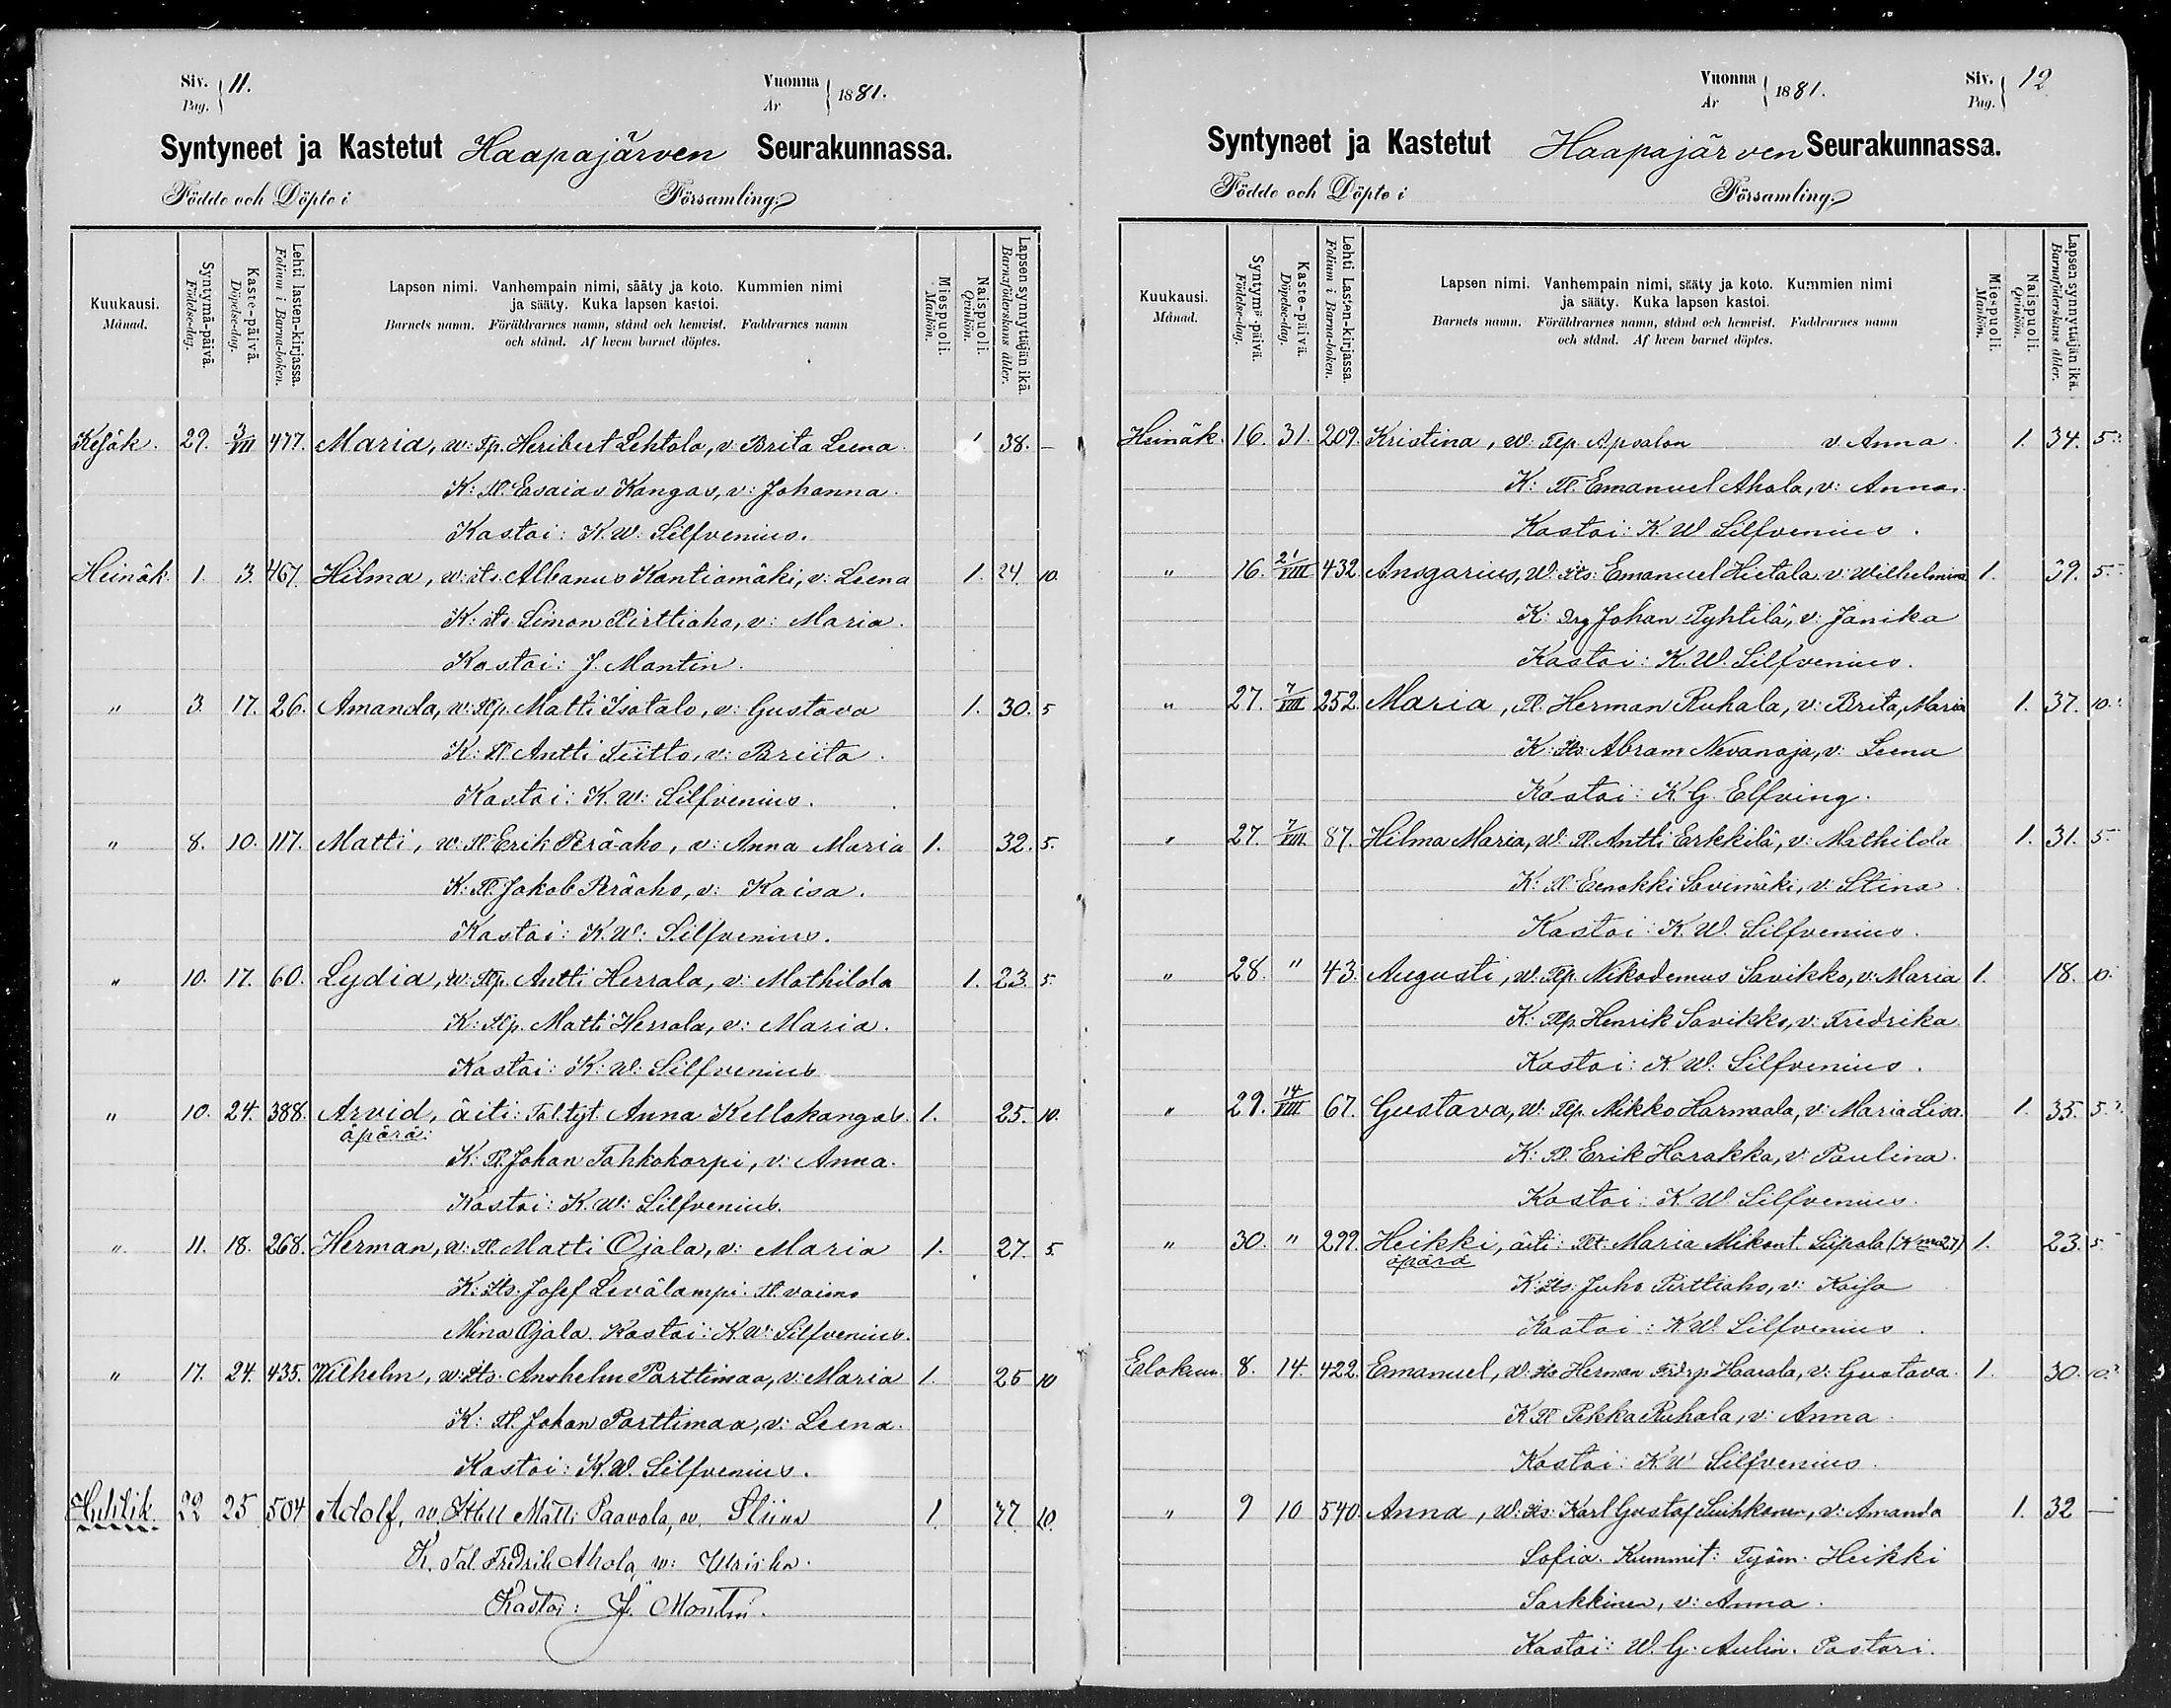 Siv. Pag. 11. Vuonna År 1881.
Syntyneet ja Kastetut Haapajärven Seurakunnassa.
Födde och Döpte i Församling.
Kuukausi. Månad. Syntymä-päivä. Födelse-dag. Kaste-päivä. Döpelse-dag. Lehti lasten-kirjassa. Folium i Barna-boken. Lapsen nimi. Vanhempain nimi, sääty ja koto. Kummien nimi ja sääty. Kuka lapsen kastoi. Barnets namn. Föräldrarnes namn, stånd och hemvist. Faddrarnes namn och stånd. Af hvem barnet döptes. Miespuoli. Mankön. Naispuoli. Qvinkön. Lapsen synnyttäjän ikä. Barnaföderskans ålder.
Kesäk. 29. 3/VII 477. Maria, w: Tp. Heribert Lehtola, v: Brita Leena 1 38. —
K: Tl. Esaias Kangas, v: Johanna.
Kastoi: K. W: Silfvenius.
Heinäk. 1. 3. 467. Hilma, w: its. Albanus Kantiomäki, v: Leena 1. 24. 10.
K: its. Simon Pirttiaho, v: Maria.
Kastoi: J. Montin.
" 3. 17. 26. Amanda, w: Tlp. Matti Isotalo, v: Gustava 1. 30. 5
K: Tl Antti Tiitto, v: Briita.
Kastoi: K. W: Silfvenius.
" 8. 10. 117. Matti, w: Tl Erik Peräaho, v: Anna Maria 1. 32. 5.
K: Tl. Jakob Peräaho, v: Kaisa.
Kastoi: K. W: Silfvenius.
" 10. 17. 60. Lydia, w: Tlp. Antti Herrala, v: Mathilda 1. 23. 5.
K: Tlp. Matti Herrala, v: Maria.
Kastoi: K: W: Silfvenius
" 10. 24. 388. Arvid, äiti: Tal. tyt. Anna Kellokangas. 1. 25. 10.
äpärä:
K: Tl. Johan Tahkokorpi, v: Anna.
Kastoi: K. W: Silfvenius.
" 11. 18. 268. Herman, w: Tl Matti Ojala, v: Maria 1. 27. 5.
K: Its. Josef Levälampi. Tl. vaimo
Mina Ojala. Kastoi: K. W: Silfvenius.
" 17. 24. 435. Wilhelm, w: Its. Anshelm Parttimaa, v: Maria 1. 25 10
K: Tl. Johan Parttimaa, v: Leena.
Kastoi: K. W. Silfvenius.
Huhtik. 22 25 504 Adolf, w. Itsll Matti Paavola, w. Stiina 1. 37 10.
K. Tal. Fredrik Ahola, w: Ulriika.
Kastoi: J. Montin.
Vuonna År 1881. Siv. Pag. 12
Syntyneet ja Kastetut Haapajärven Seurakunnassa.
Födde och Döpte i Församling.
Kuukausi. Månad. Syntymä-päivä. Födelse-dag. Kaste-päivä. Döpelse-dag. Lehti Lasten-kirjassa. Folium i Barna-boken. Lapsen nimi. Vanhempain nimi, sääty ja koto. Kummien nimi ja sääty. Kuka lapsen kastoi. Barnets namn. Föräldrarnes namn, stånd och hemvist. Faddrarnes namn och stånd. Af hvem barnet döptes. Miespuoli. Mankön. Naispuoli. Qvinkön. Lapsen synnyttäjän ikä. Barnaföderskans ålder.
Heinäk. 16. 31. 209. Kristina, W: Tlp. Apsalon v: Anna 1. 34. 5
K: Tl. Emanuel Ahola, v: Anna.
Kastoi: K. W Silfvenius.
" 16. 21/VIII 432. Ansgarius, W: Its: Emanuel Hietala v: Wilhelmina 1. 39. 5.
K: Drg Johan Pyhtilä, v: Janika
Kastoi: K. W. Silfvenius.
" 27. 7/VIII 252. Maria, Tl. Herman Ruhala, v: Brita, Maria 1. 37. 10.
K: Its: Abram Nevanoja, v: Leena
Kastoi: K. G. Elfving.
" 27. 7/VIII. 87. Hilma Maria, W: Tl. Antti Erkkilä, v: Mathilda 1. 31. 5
K: Tl Eenokki Savimäki, v: Stina
Kastoi: K. W. Silfvenius.
" 28. " 43. Augusti, W: Tlp. Nikodemus Savikko, v: Maria 1. 18. 10.
K: Tlp. Henrik Savikko, v: Fredrika
Kastoi: K W. Silfvenius.
" 29. 14/VIII 67. Gustava, W: Tlp. Mikko Harmaala, v: Maria Lisa. 1. 35. 5.
K: Tl. Erik Harakka, v: Paulina.
Kastoi: K W Silfvenius.
" 30. " 299. Heikki, äiti: Tlt. Maria Mikont. Siipola 1. 23. 5
äpärä
K: Its: Juho Pirttiaho, v: Kaisa
Kastoi: K W. Silfvenius.
Elokuu. 8. 14. 422. Emanuel, W: Its Herman Haarala, v: Gustava. 1. 30. 10.
K Tl Pekka Ruhala, v: Anna
Kastoi: K W Silfvenius.
" 9 10 540. Anna, W: Its: Karl Gustaf Suihkonen, v: Amanda 1. 32 —
Sofia. Kummit: Työm. Heikki
Sarkkinen, v: Anna.
Kastoi: W. G. Aulin. Pastori.